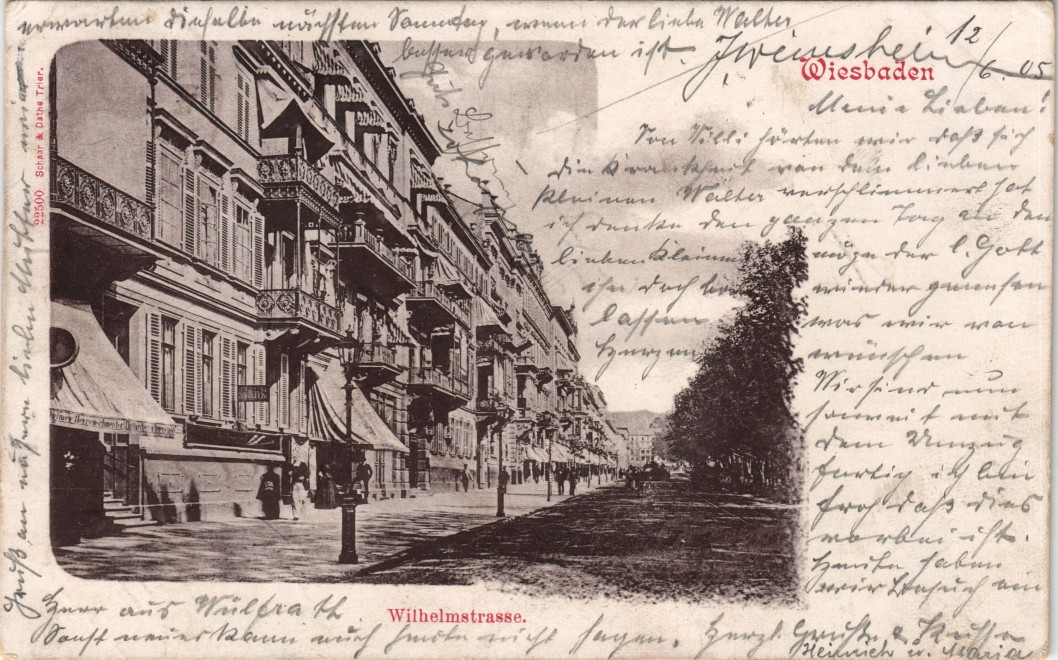 Wiesbaden
12/6.05
Meine Lieben!
Von Willi hörten wir daß sich
die Krankheit von dem lieben
kleinen Walter verschlimmert hat
ich denke den ganzen Tag an den
lieben Kleinen möge der l. Gott
ihn doch wieder genesen
lassen was wir von
Herzen wünschen
Wir sind nun
soweit mit
dem Umzug
fertig ich bin
froh daß dies
vorbei ist.
Heute haben
wir Besuch ein
Herr aus Wülfrath
Sonst neues kann euch heute nicht sagen. Herzl. Grüße & Küsse
Heinrich u. Maria
Gruß an unsern lieben
erwarten dieselbe nächsten Sonntag, wenn der liebe Walter
besser geworden ist.
Wilhelmstrasse.
22500 Schaar & Dathe Trier.